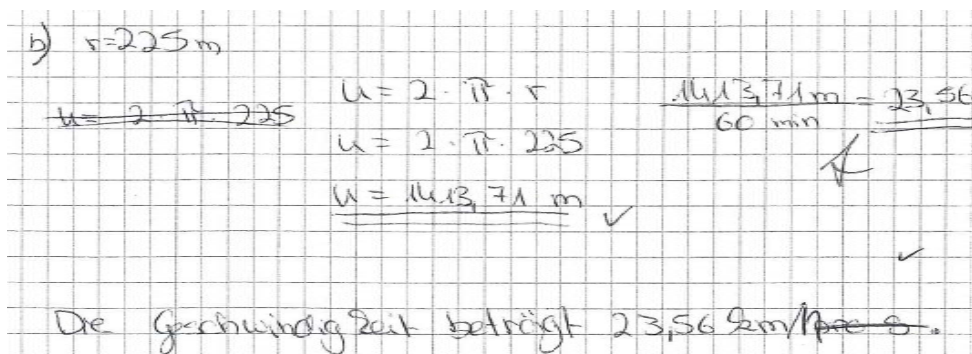 b) r=225m
u = 2 · π · 225
u = 2 · π · r
u = 2 · π · 225
u = 1413,71 m ✓
1413,71 m / 60 min = 23,56
✓
Die Geschwindigkeit beträgt 23,56 km/